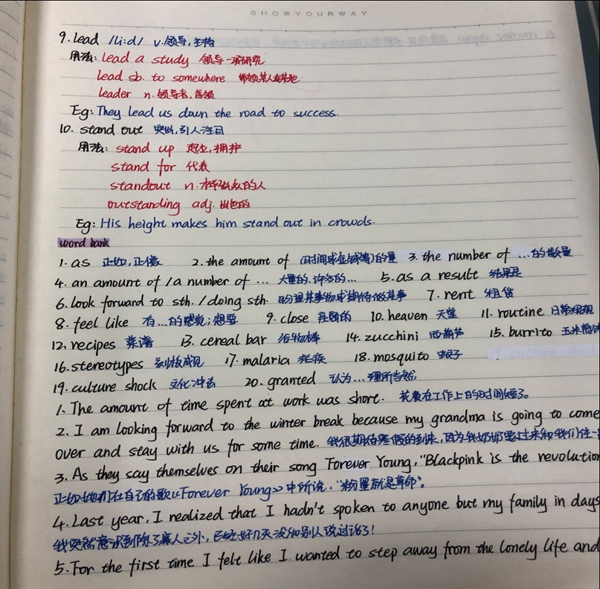 SHOWYOURWAY
9. lead /li:d/ v. 领导,主持
用法: lead a study 领导一项研究
lead sb. to somewhere 带领某人去某地
leader n. 领导者,首领
Eg: They lead us down the road to success.
10. stand out 突出,引人注目
用法: stand up 起立,拥护
stand for 代表
standout n. 的人
outstanding adj. 出色的
Eg: His height makes him stand out in crowds.
word bank
1. as 正如,正像 2. the amount of (时间或金钱等)的量 3. the number of …的数量
4. an amount of / a number of … 大量的,许多的… 5. as a result 结果是
6. look forward to sth. / doing sth. 盼望某事物或期待做某事 7. rent 租赁
8. feel like 有…的感觉;想要 9. close 亲密的 10. heaven 天堂 11. routine 日常
12. recipes 菜谱 13. cereal bar 谷物棒 14. zucchini 西葫芦 15. burrito 玉米
16. stereotypes 刻板成见 17. malaria 疟疾 18. mosquito 蚊子
19. culture shock 文化冲击 20. granted 认为…理所当然
1. The amount of time spent at work was short. 花费在工作上的时间短了。
2. I am looking forward to the winter break because my grandma is going to come
over and stay with us for some time. 我很期待寒假的到来,因为我奶奶要过来和我们住一
3. As they say themselves on their song Forever Young, "Blackpink is the revolution
正如她们在自己的歌《Forever Young》中所说,"粉墨就是革命"。
4. Last year, I realized that I hadn't spoken to anyone but my family in days
我突然意识到除了家人之外,已经好几天没和别人说过话了!
5. For the first time I felt like I wanted to step away from the lonely life and